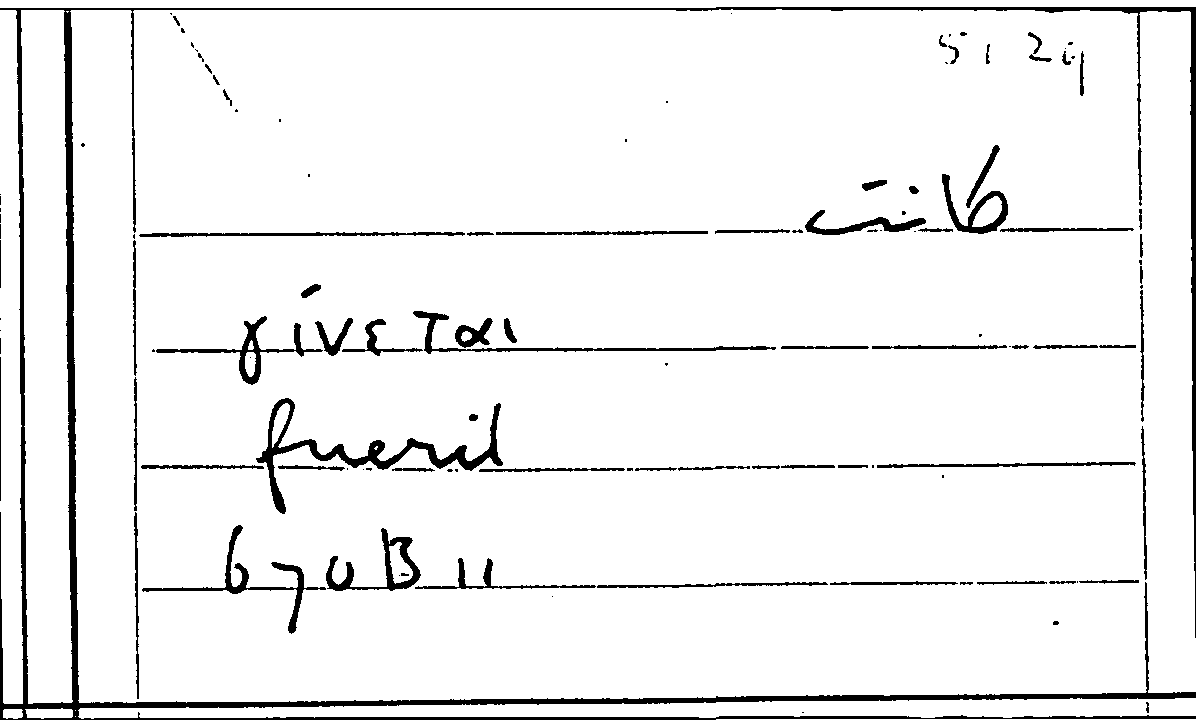 5, 29
γίνεται
fuerit
670 B 11